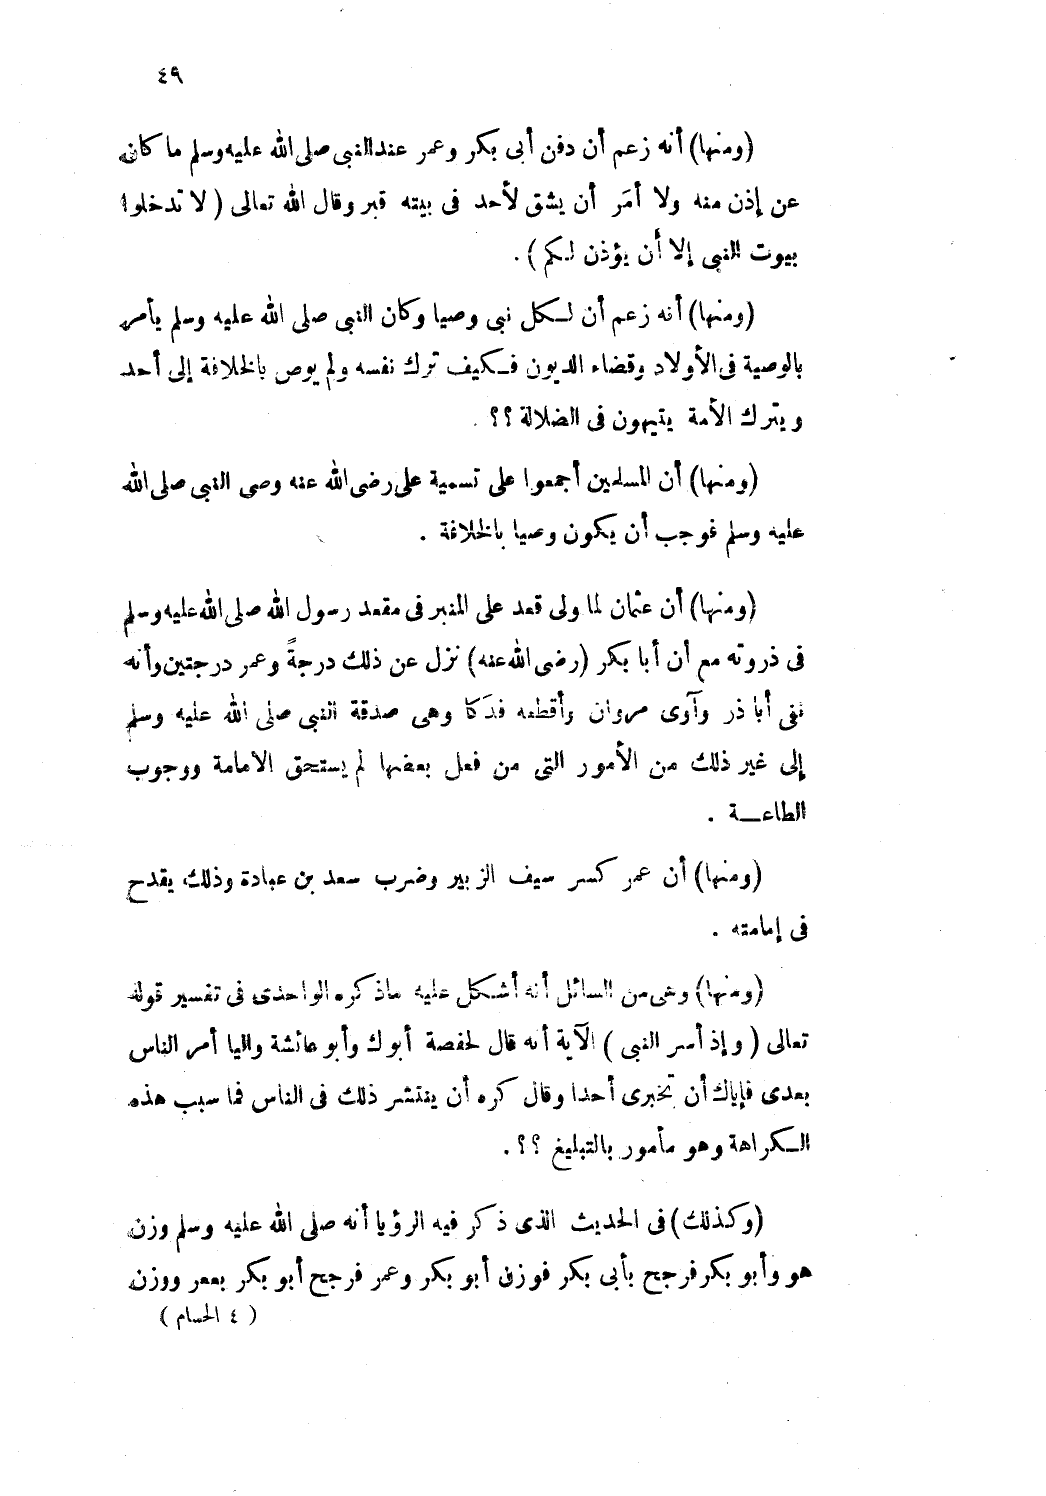 ٤٩
(ومنها) أنه زعم أن دفن أبى بكر وعمر عند النبى صلى الله عليه وسلم ما كان
عن إذن منه ولا أمَر أن يشق لأحد فى بيته قبر وقال الله تعالى ( لا تدخلوا
بيوت النبى إلا أن يؤذن لكم ) .
(ومنها) أنه زعم أن لـكل نبى وصيا وكان النبى صلى الله عليه وسلم يأمر
بالوصية فى الأولاد وقضاء الديون فـكيف ترك نفسه ولم يوص بالخلافة إلى أحد
ويترك الأمة يتيهون فى الضلالة ؟؟ .
(ومنها) أن المسلمين أجمعوا على تسمية على رضى الله عنه وصى النبى صلى الله
عليه وسلم فوجب أن يكون وصيا بالخلافة .
(ومنها) أن عثمان لما ولى قعد على المنبر فى مقعد رسول الله صلى الله عليه وسلم
فى ذروته مع أن أبا بكر (رضى الله عنه) نزل عن ذلك درجةً وعمر درجتين وأنه
نفى أبا ذر وآوى مروان وأقطعه فدَكا وهى صدقة النبى صلى الله عليه وسلم
إلى غير ذلك من الأمور التى من فعل بعضها لم يستحق الامامة ووجوب
الطاعــة .
(ومنها) أن عمر كسر سيف الزبير وضرب سعد بن عبادة وذلك يقدح
فى إمامته .
(ومنها) وهى من السائل أنه أشكل عليه ماذكره الواحدى فى تفسير قوله
تعالى ( وإذ أسر النبى ) الآية أنه قال لحفصة أبوك وأبو عائشة واليا أمر الناس
بعدى فإياك أن تخبرى أحدا وقال كره أن ينتشر ذلك فى الناس فما سبب هذه
الـكراهة وهو مأمور بالتبليغ ؟؟ .
(وكذلك) فى الحديث الذى ذكر فيه الرؤيا أنه صلى الله عليه وسلم وزن
هو وأبو بكر فرجح بأبى بكر فوزن أبو بكر وعمر فرجح أبو بكر بعمر ووزن
( ٤ الحسام )